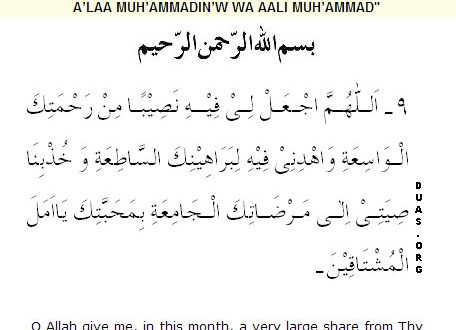 A'LAA MUH'AMMADIN'W WA AALI MUH'AMMAD"
بسم الله الرّحمن الرّحيم
٩ـ اَللّٰهُمَّ اجْعَلْ لِىْ فِيْهِ نَصِيْبًا مِنْ رَحْمَتِكَ
الْوَاسِعَةِ وَاهْدِنِىْ فِيْهِ لِبَرَاهِيْنِكَ السَّاطِعَةِ وَ خُذْبِنَا
صِيَتِىْ اِلٰى مَرْضَاتِكَ الْجَامِعَةِ بِمَحَبَّتِكَ يَااَمَلَ
الْمُشْتَاقِيْنَ ـ
DUAS.ORG
O Allah give me, in this month, a very large share from Thy